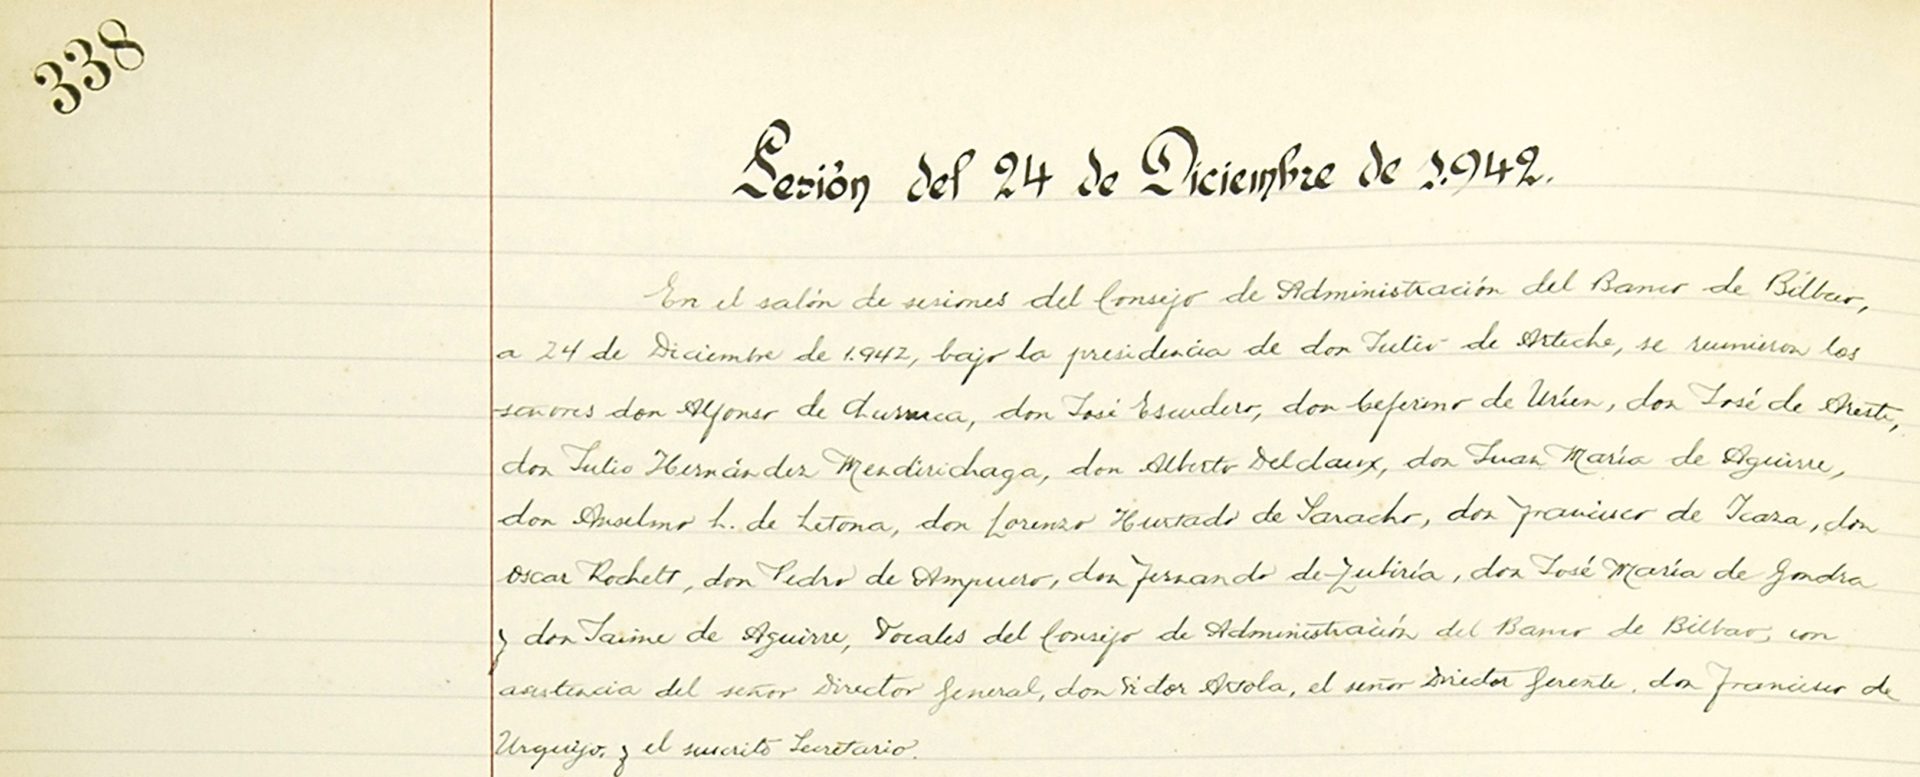 338
Sesión del 24 de Diciembre de 1.942.
En el salón de sesiones del Consejo de Administración del Banco de Bilbao,
a 24 de Diciembre de 1.942, bajo la presidencia de don Julio de Arteche, se reunieron los
señores don Alfonso de Churruca, don José Escudero, don Ceferino de Uríen, don José de Aresti,
don Julio Hernández Mendirichaga, don Alberto Delclaux, don Juan María de Aguirre,
don Anselmo L. de Letona, don Lorenzo Hurtado de Saracho, don Francisco de Icaza, don
Oscar Rochelt, don Pedro de Ampuero, don Fernando de Zubiría, don José María de Gondra
y don Jaime de Aguirre, Vocales del Consejo de Administración del Banco de Bilbao, con
asistencia del señor Director General, don Victor Artola, el señor Director Gerente, don Francisco de
Urquijo, y el suscrito Secretario.